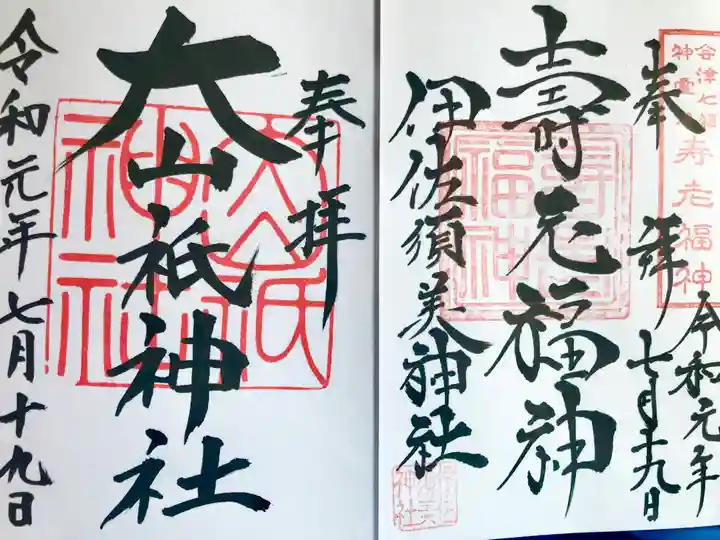 会津七福神霊場
寿老福神
奉拝
令和元年
七月十九日
壽老福神
寿老福神
伊佐須美神社
奉拝
大山祇神社
大山祇神社
令和元年七月十九日